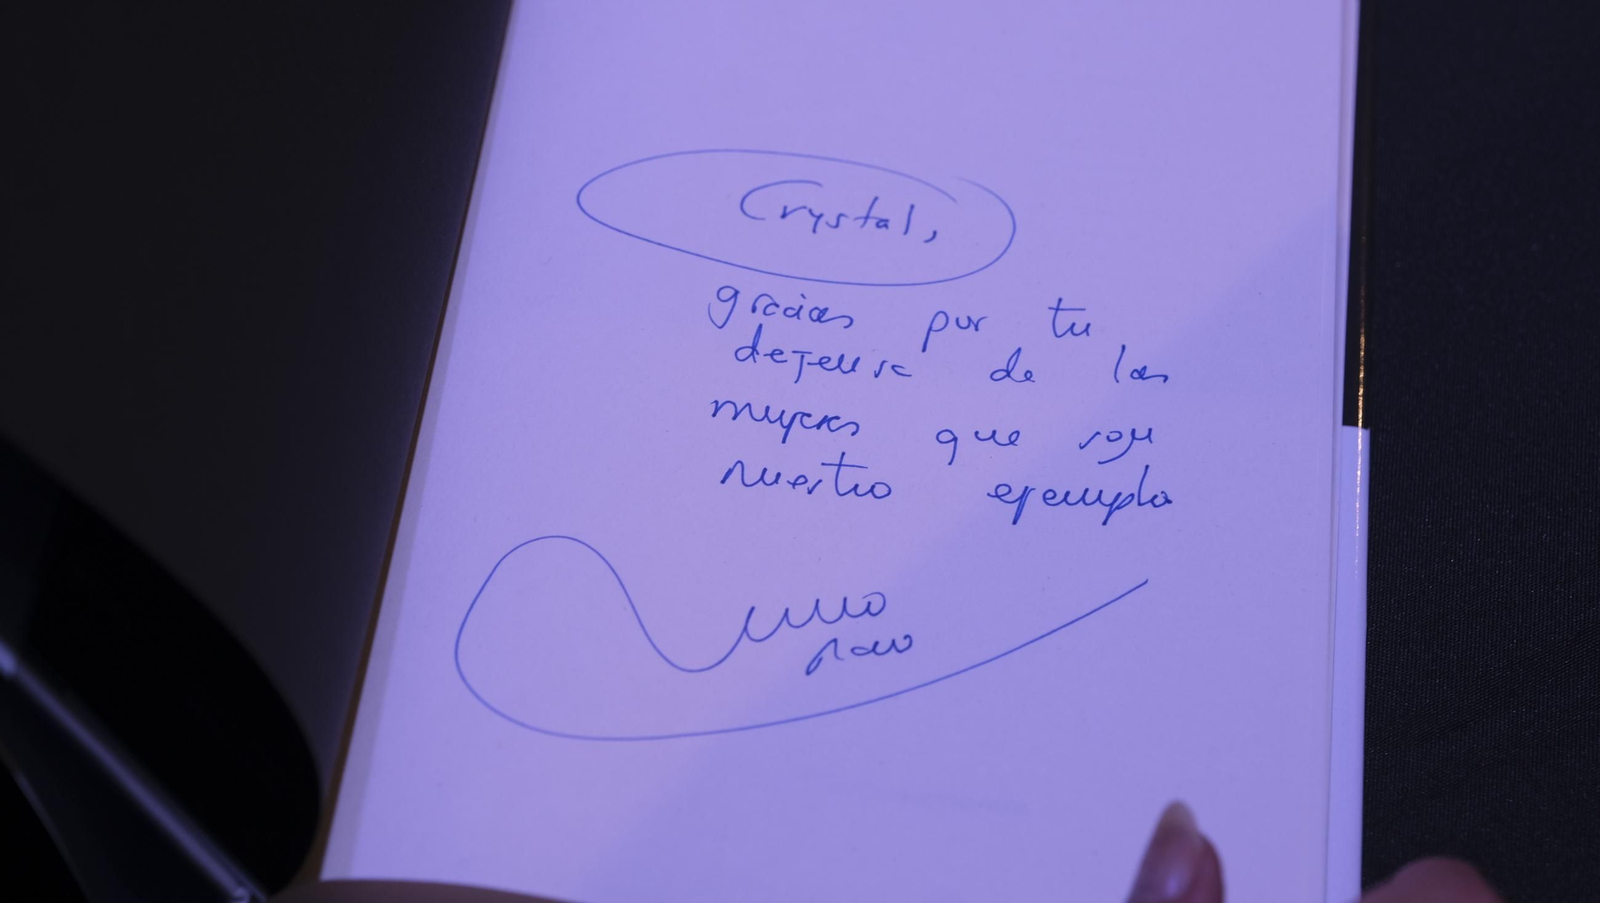 Crystal,
gracias por tu
defensa de las
mujeres que son
nuestro ejemplo